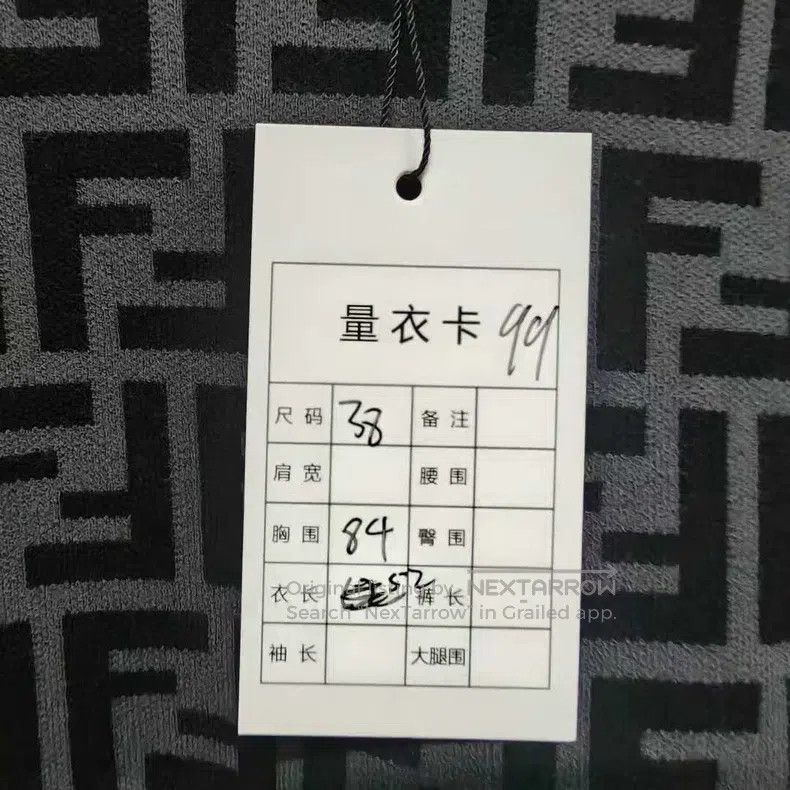 量衣卡 99
尺码 38 备注
肩宽 腰围
胸围 84 臀围
衣长 52 裤长
袖长 大腿围
Original listing by NEXTARROW
Search "NexTarrow" in Grailed app.